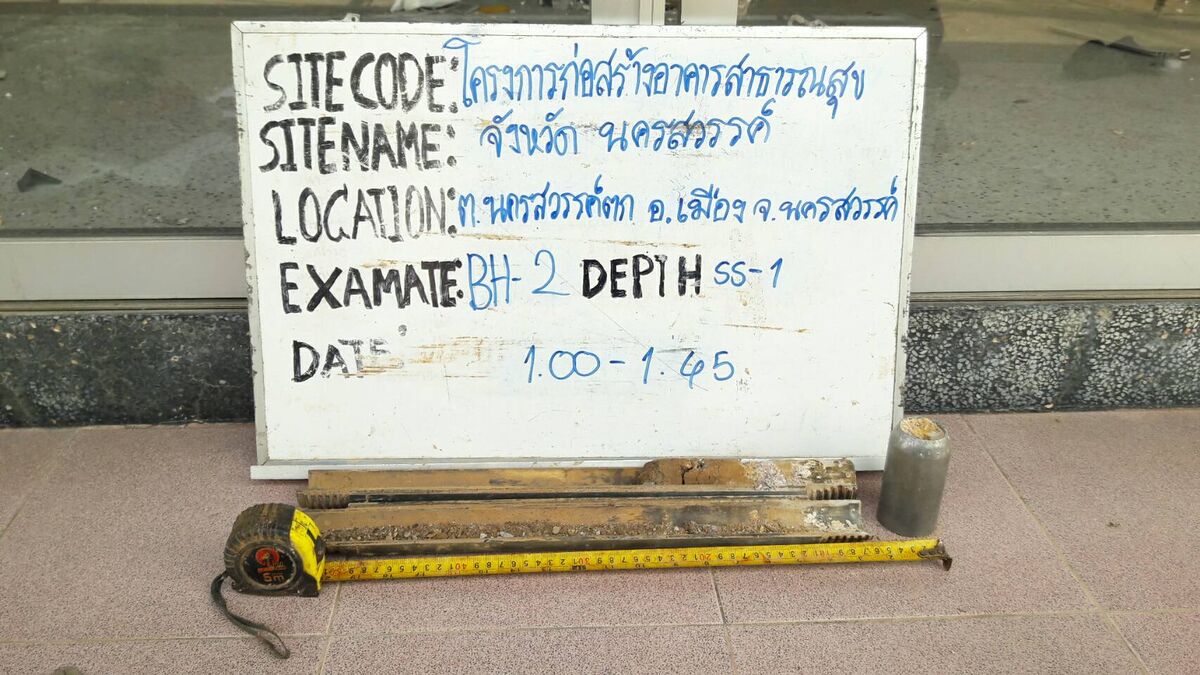 SITE CODE: โครงการก่อสร้างอาคารสาธารณสุข
SITE NAME: จังหวัด นครสวรรค์
LOCATION: ต.นครสวรรค์ตก อ.เมือง จ.นครสวรรค์
EXAMATE: BH-2 DEPTH SS-1
DATE 1.00-1.45